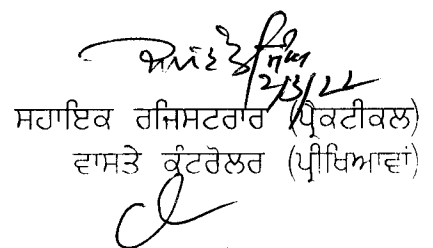 2/3/22
ਸਹਾਇਕ ਰਜਿਸਟਰਾਰ (ਪ੍ਰੈਕਟੀਕਲ)
ਵਾਸਤੇ ਕੰਟਰੋਲਰ (ਪ੍ਰੀਖਿਆਵਾਂ)